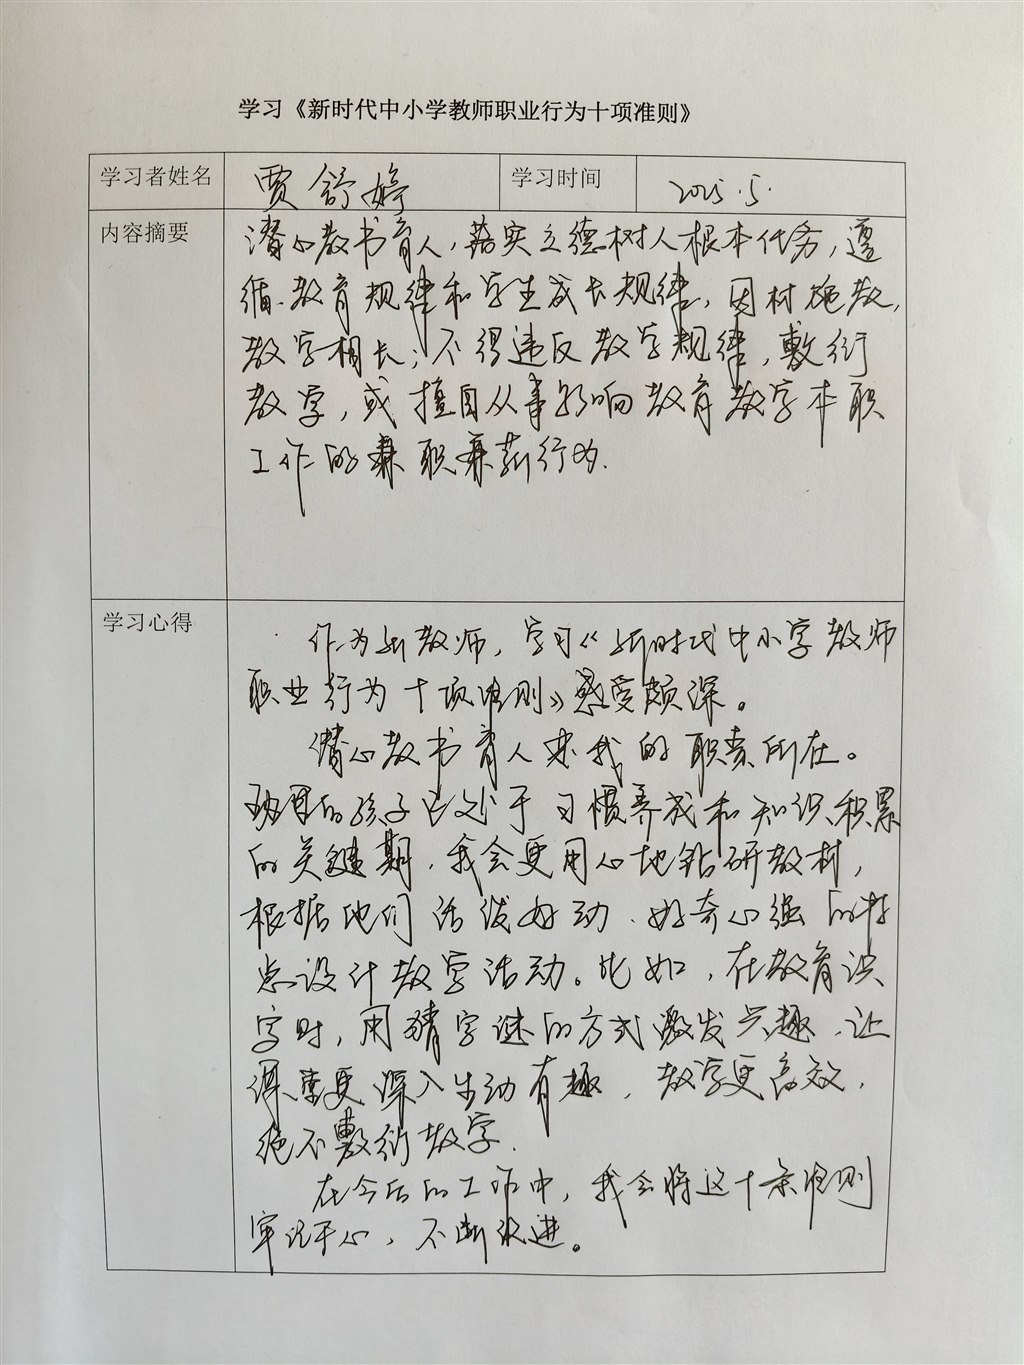 学习《新时代中小学教师职业行为十项准则》
学习者姓名 贾舒婷 学习时间 2025.5.
内容摘要
潜心教书育人,落实立德树人根本任务,遵
循教育规律和学生成长规律,因材施教,
教学相长;不得违反教学规律,敷衍
教学,或擅自从事影响教育教学本职
工作的兼职兼薪行为.
学习心得
作为新教师,学习《新时代中小学教师
职业行为十项准则》感受颇深。
潜心教书育人是我的职责所在。
班里的孩子正处于习惯养成和知识积累
的关键期,我会更用心地钻研教材,
根据他们活泼好动、好奇心强的特
点设计教学活动。比如,在教育识
字时,用猜字谜的方式激发兴趣,让
课堂更深入生动有趣,教学更高效,
绝不敷衍教学.
在今后的工作中,我会将这十条准则
牢记于心,不断改进。